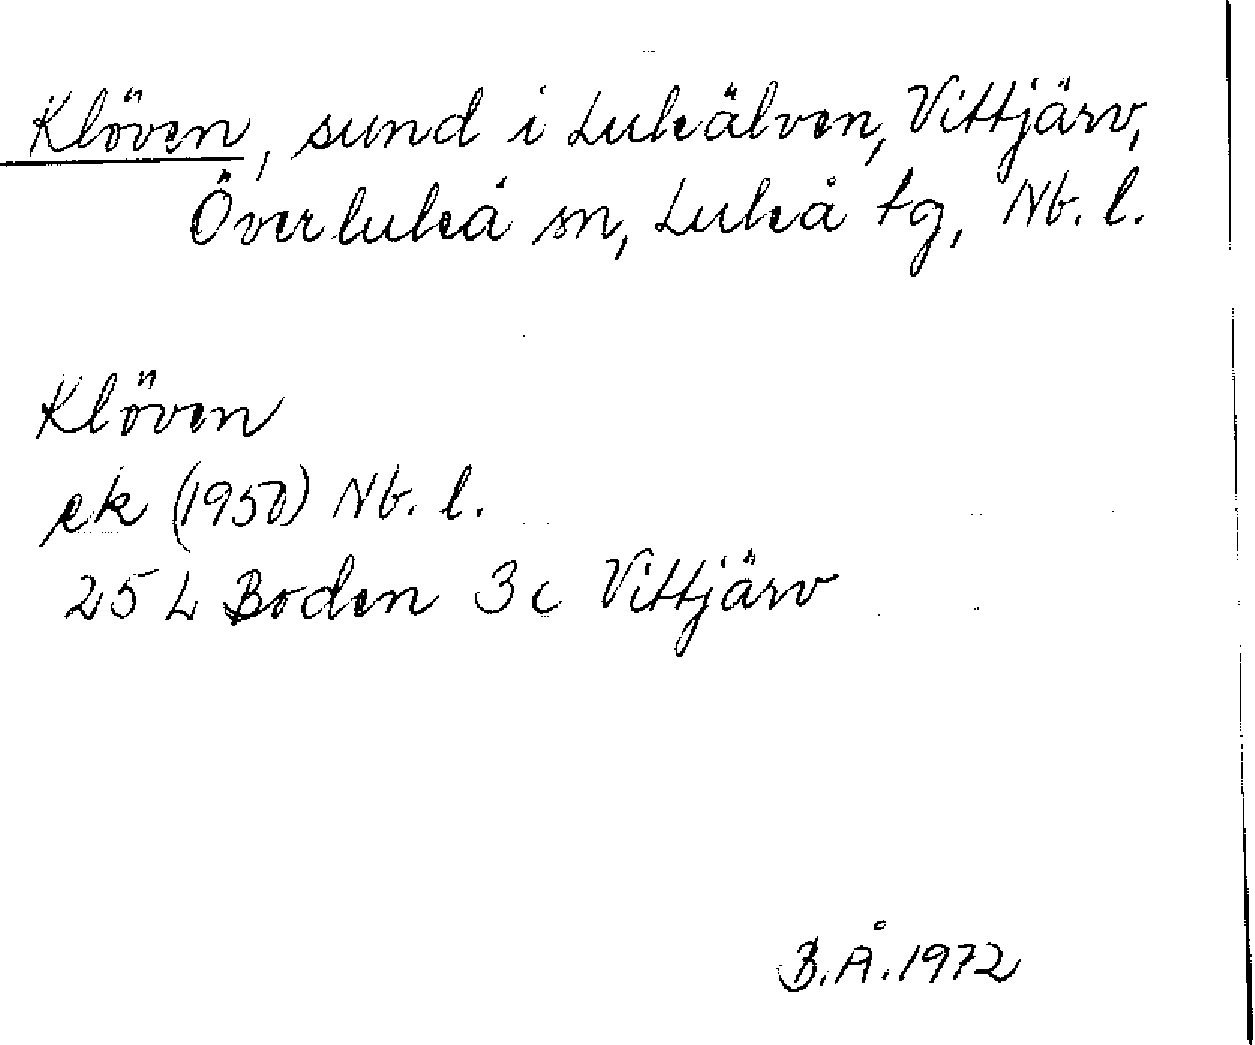 Klöven, sund i Luleälven, Vittjärv,
Överluleå sn, Luleå tg, Nb. l.
Klöven
ek (1950) Nb. l.
25 L Boden 3 c Vittjärv
B.Å.1972